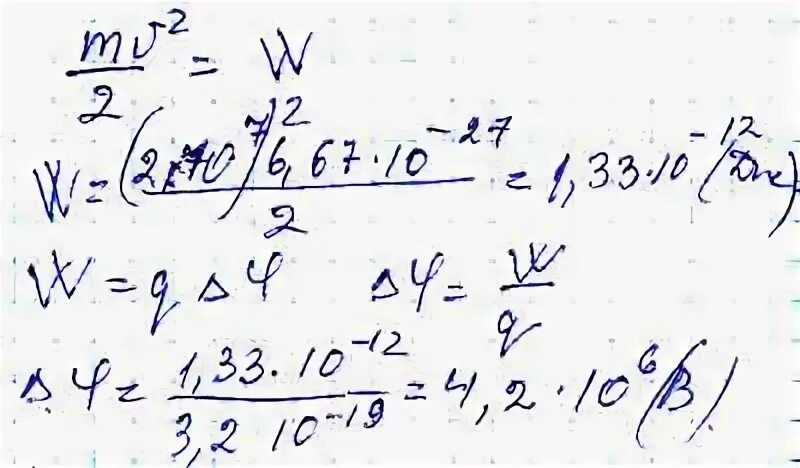 mv²/2 = W
W = (2·10⁷)² 6,67·10⁻²⁷/2 = 1,33·10⁻¹² (Дж)
W = q Δφ   Δφ = W/q
Δφ = 1,33·10⁻¹²/3,2 10⁻¹⁹ = 4,2·10⁶ (В)